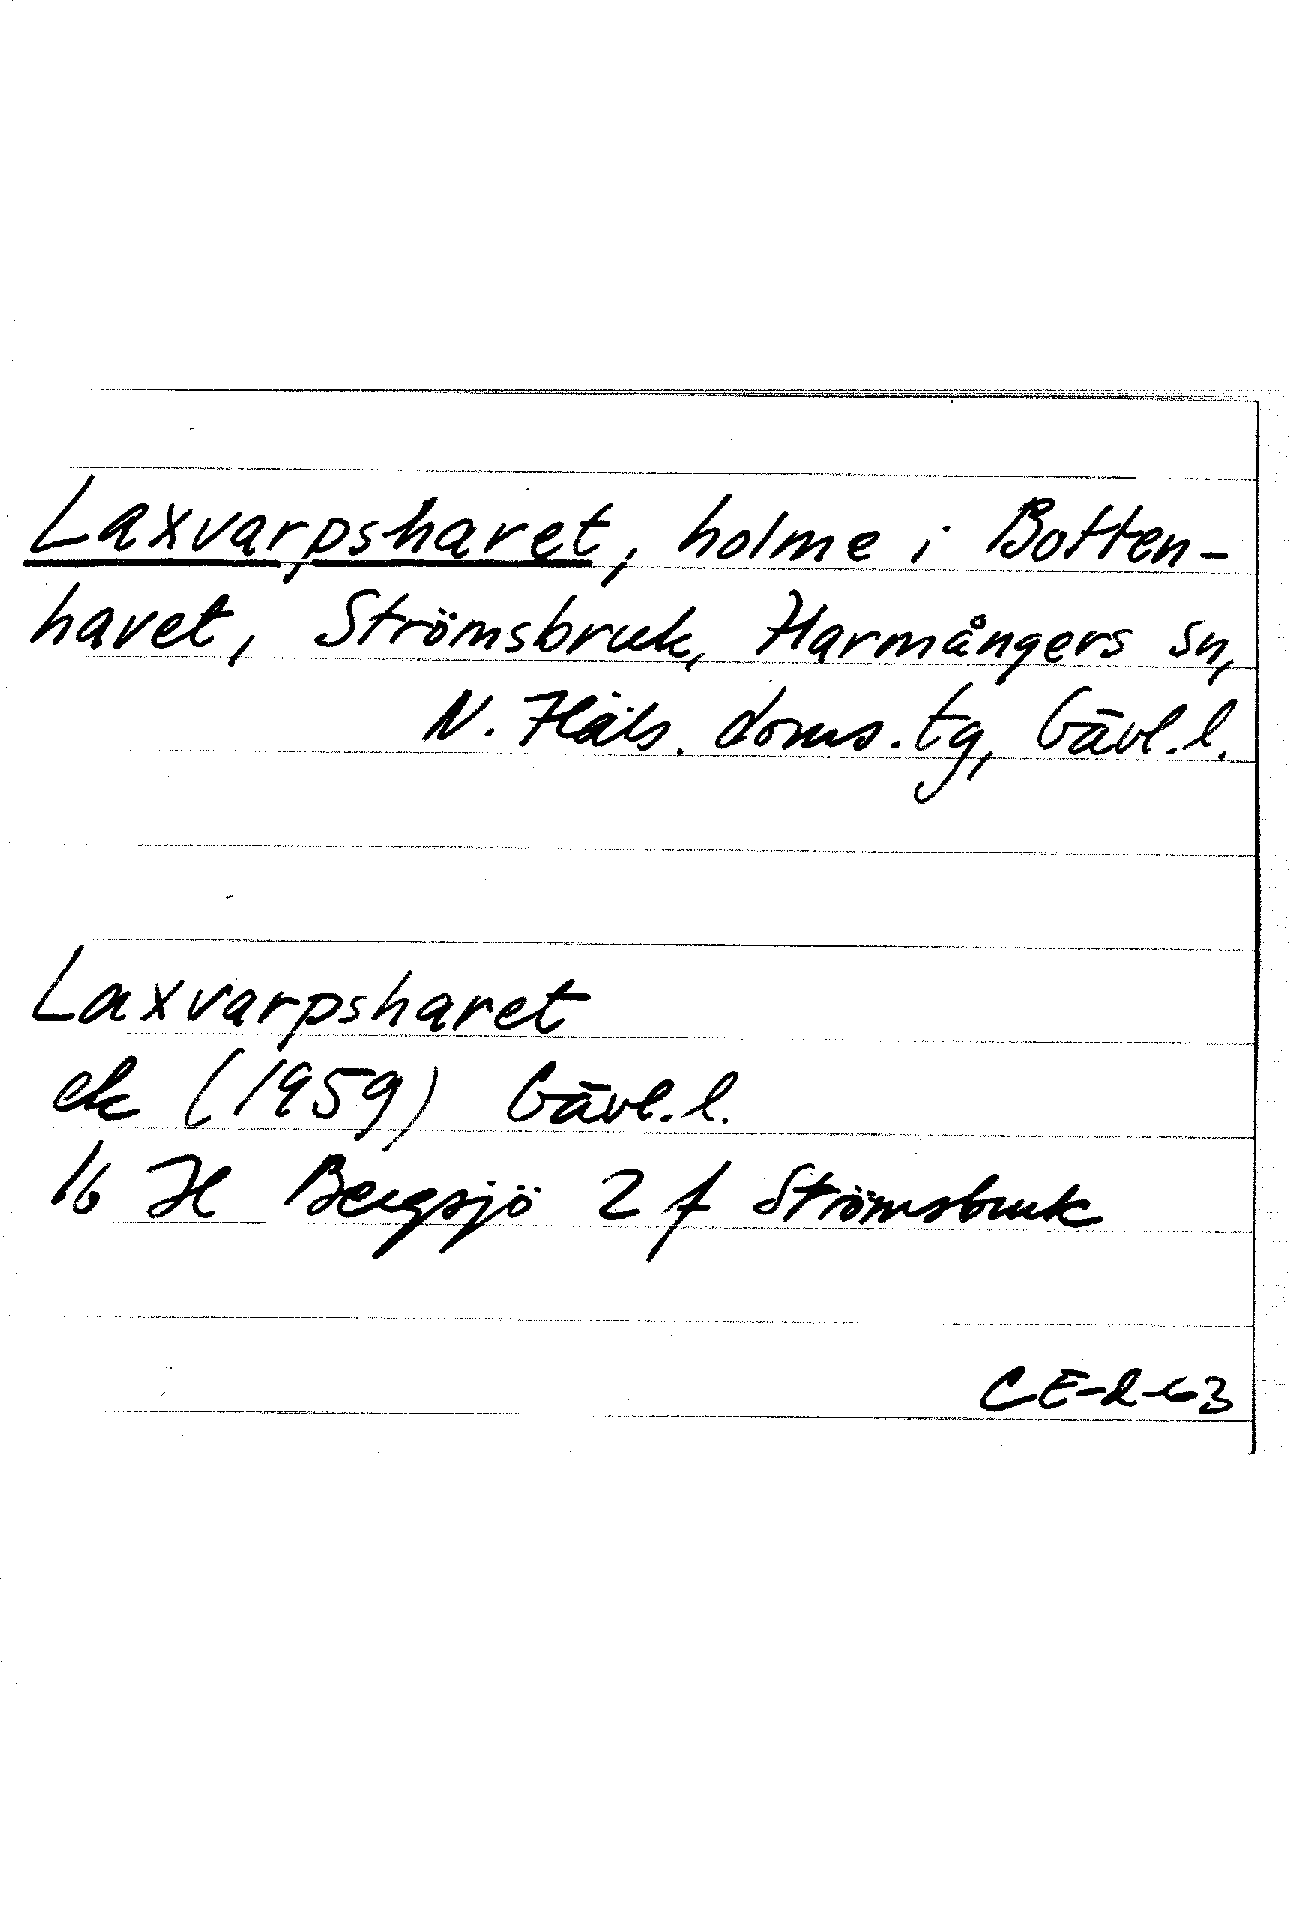 Laxvarpsharet, holme i Botten-
havet, Strömsbruk, Harmångers sn,
N. Häls. doms. tg, Gävl. l.
Laxvarpsharet
ek (1959) Gävl. l.
16 H Bergsjö 2 f Strömsbruk
CE-2-63